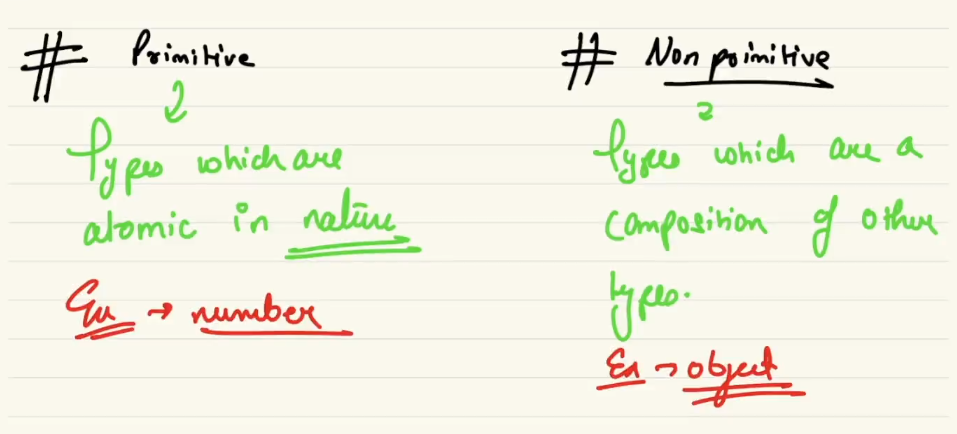 # Primitive
Types which are
atomic in nature
Ex → number
# Non primitive
Types which are a
composition of other
types.
Ex → object